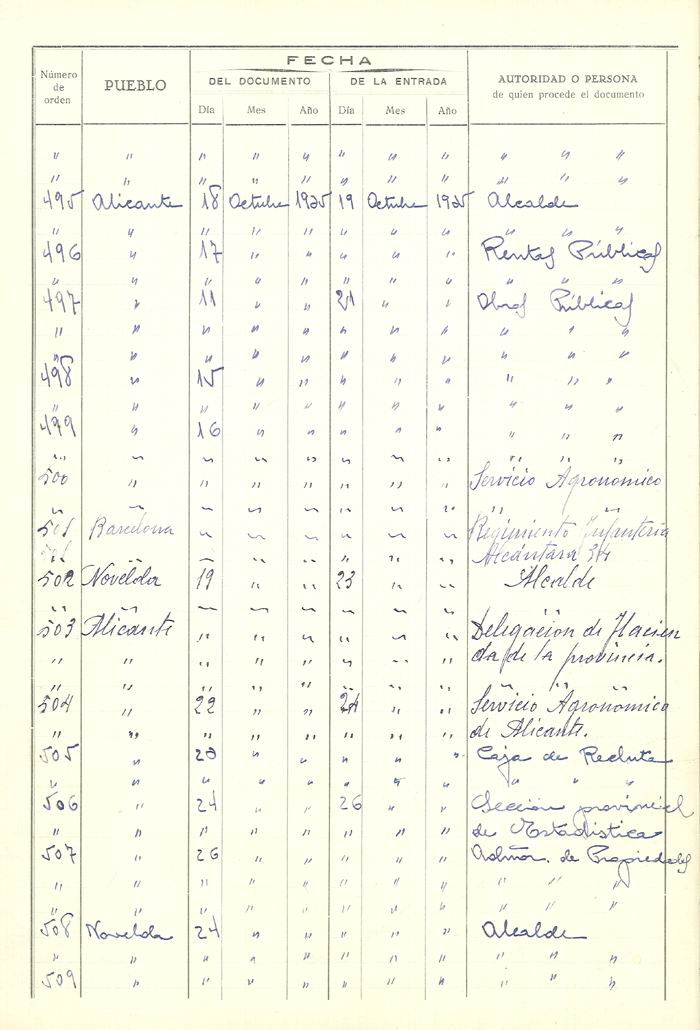 FECHA
Número de orden PUEBLO DEL DOCUMENTO DE LA ENTRADA AUTORIDAD O PERSONA de quien procede el documento
Día Mes Año Día Mes Año
" " " " " " " " " " "
" " " " " " " " " " "
495 Alicante 18 Octubre 1925 19 Octubre 1925 Alcalde
" " " " " " " " " " "
496 " 17 " " " " " Rentas Públicas
" " " " " " " " " " "
497 " 11 " " 21 " " Obras Públicas
" " " " " " " " " " "
" " " " " " " " " " "
498 " 15 " " " " " " " "
" " " " " " " " " " "
499 " 16 " " " " " " " "
" " " " " " " " " " "
500 " " " " " " " Servicio Agronomico
" " " " " " " " " "
501 Barcelona " " " " " " Regimiento Infanteria
" " " " " " Alcántara 34
502 Novelda 19 " " 23 " " Alcalde
" " " " " " " " "
503 Alicante " " " " " " Delegación de Hacien
" " " " " " " " da de la provincia.
" " " " " " " " " "
504 " 22 " " 24 " " Servicio Agronómico
" " " " " " " " de Alicante.
505 " 23 " " " " " Caja de Recluta
" " " " " " " " " " "
506 " 24 " " 26 " " Sección provincial
" " " " " " " " de Estadistica
507 " 26 " " " " " Admón. de Propiedades
" " " " " " " " " " "
" " " " " " " " " " "
508 Novelda 24 " " " " " Alcalde
" " " " " " " " " " "
509 " " " " " " " " " "